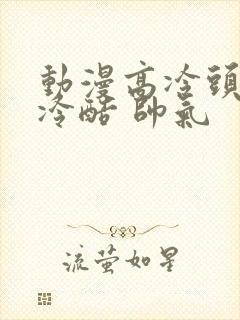 動漫高冷頭
冷酷 帥氣
流萤如星